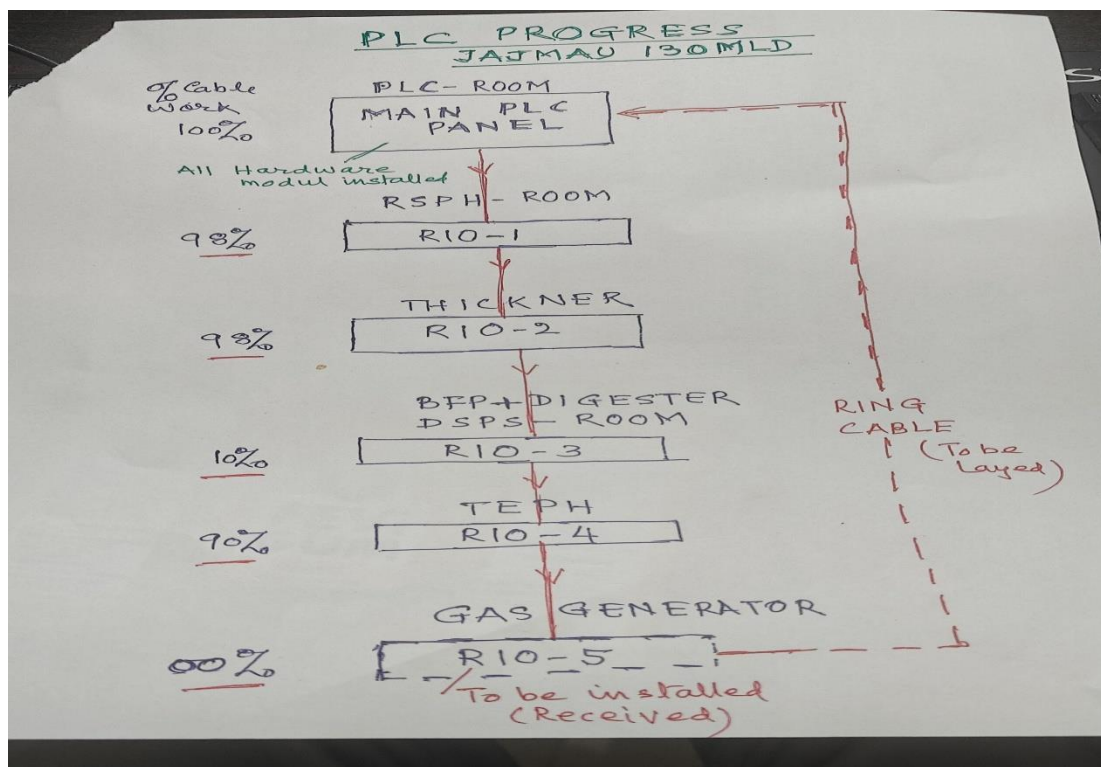 PLC PROGRESS
JAJMAU 130MLD
% Cable
work
100%
PLC-ROOM
MAIN PLC
PANEL
All Hardware
modul installed
RSPH-ROOM
98%
RIO-1
THICKNER
98%
RIO-2
BFP+DIGESTER
DSPS-ROOM
10%
RIO-3
RING
CABLE
(To be
Layed)
TEPH
90%
RIO-4
GAS GENERATOR
00%
RIO-5
To be installed
(Received)
S